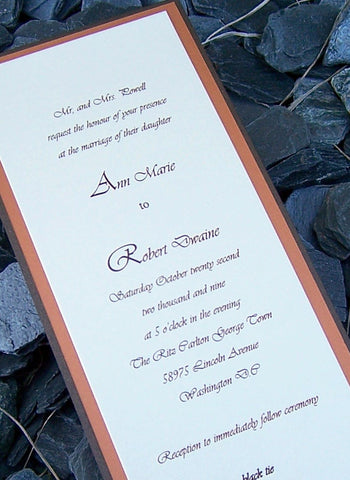 Mr. and Mrs. Powell
request the honour of your presence
at the marriage of their daughter
Ann Marie
to
Robert Dwaine
Saturday October twenty second
two thousand and nine
at 5 o'clock in the evening
The Ritz Carlton George Town
58975 Lincoln Avenue
Washington DC
Reception to immediately follow ceremony
black tie